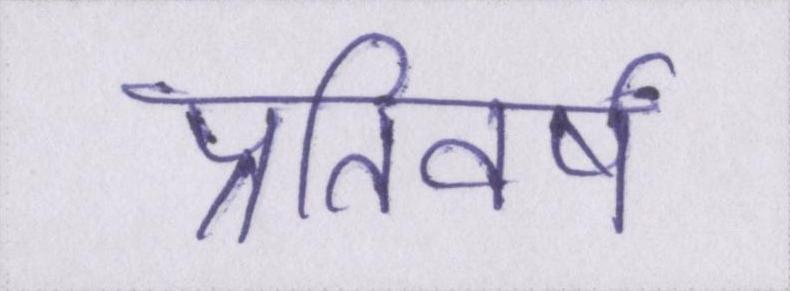 प्रतिवर्ष